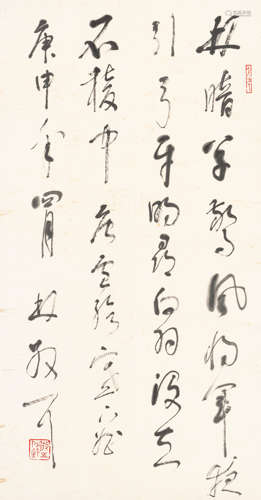 林暗草驚風將軍夜
引弓平明尋白羽沒在
石稜中唐盧綸塞下曲
庚申年四月林散耳